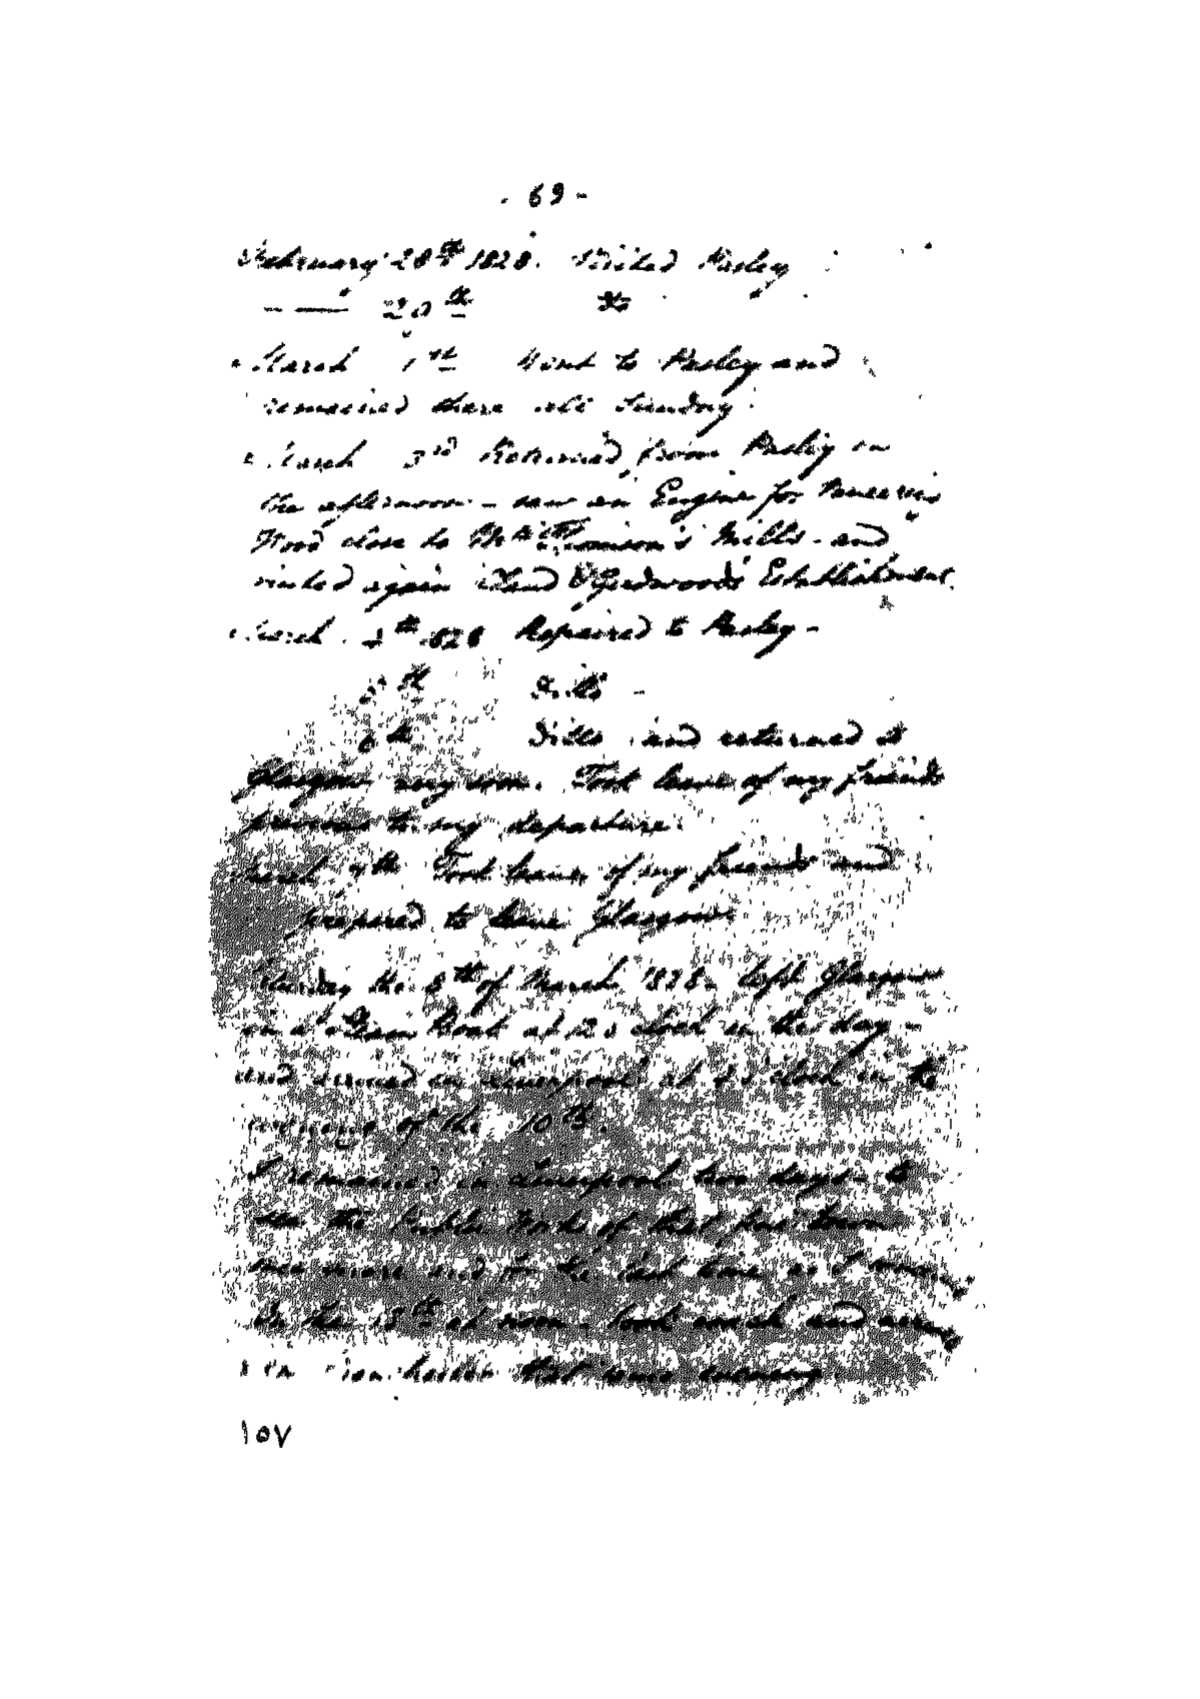 - 69 -
February 28th 1828. Visited Pasley
—— 20th Do
March 1th Went to Pasley and
remained there all Sunday.
March 3rd Returned from Pasley in
the afternoon - saw an Engine for
Wood close to Mills - and
visited again Establishment.
March th 1828 Repaired to Pasley -
th Ditto -
6th Ditto and returned to
Glasgow very soon. Took leave of my friends
previous to my departure.
March 7th Took leave of my friends and
prepared to leave Glasgow
the 8th of March 1828. left Glasgow
in a Steam Boat at 12 o'clock in the day -
and arrived in Liverpool at o'clock in the
evening of the 10th.
I remained in Liverpool two days - to
see the Public Works of that fine town
once more and for the last time as I
On the 13th at noon - took coach and
in that same evening
١٥٧